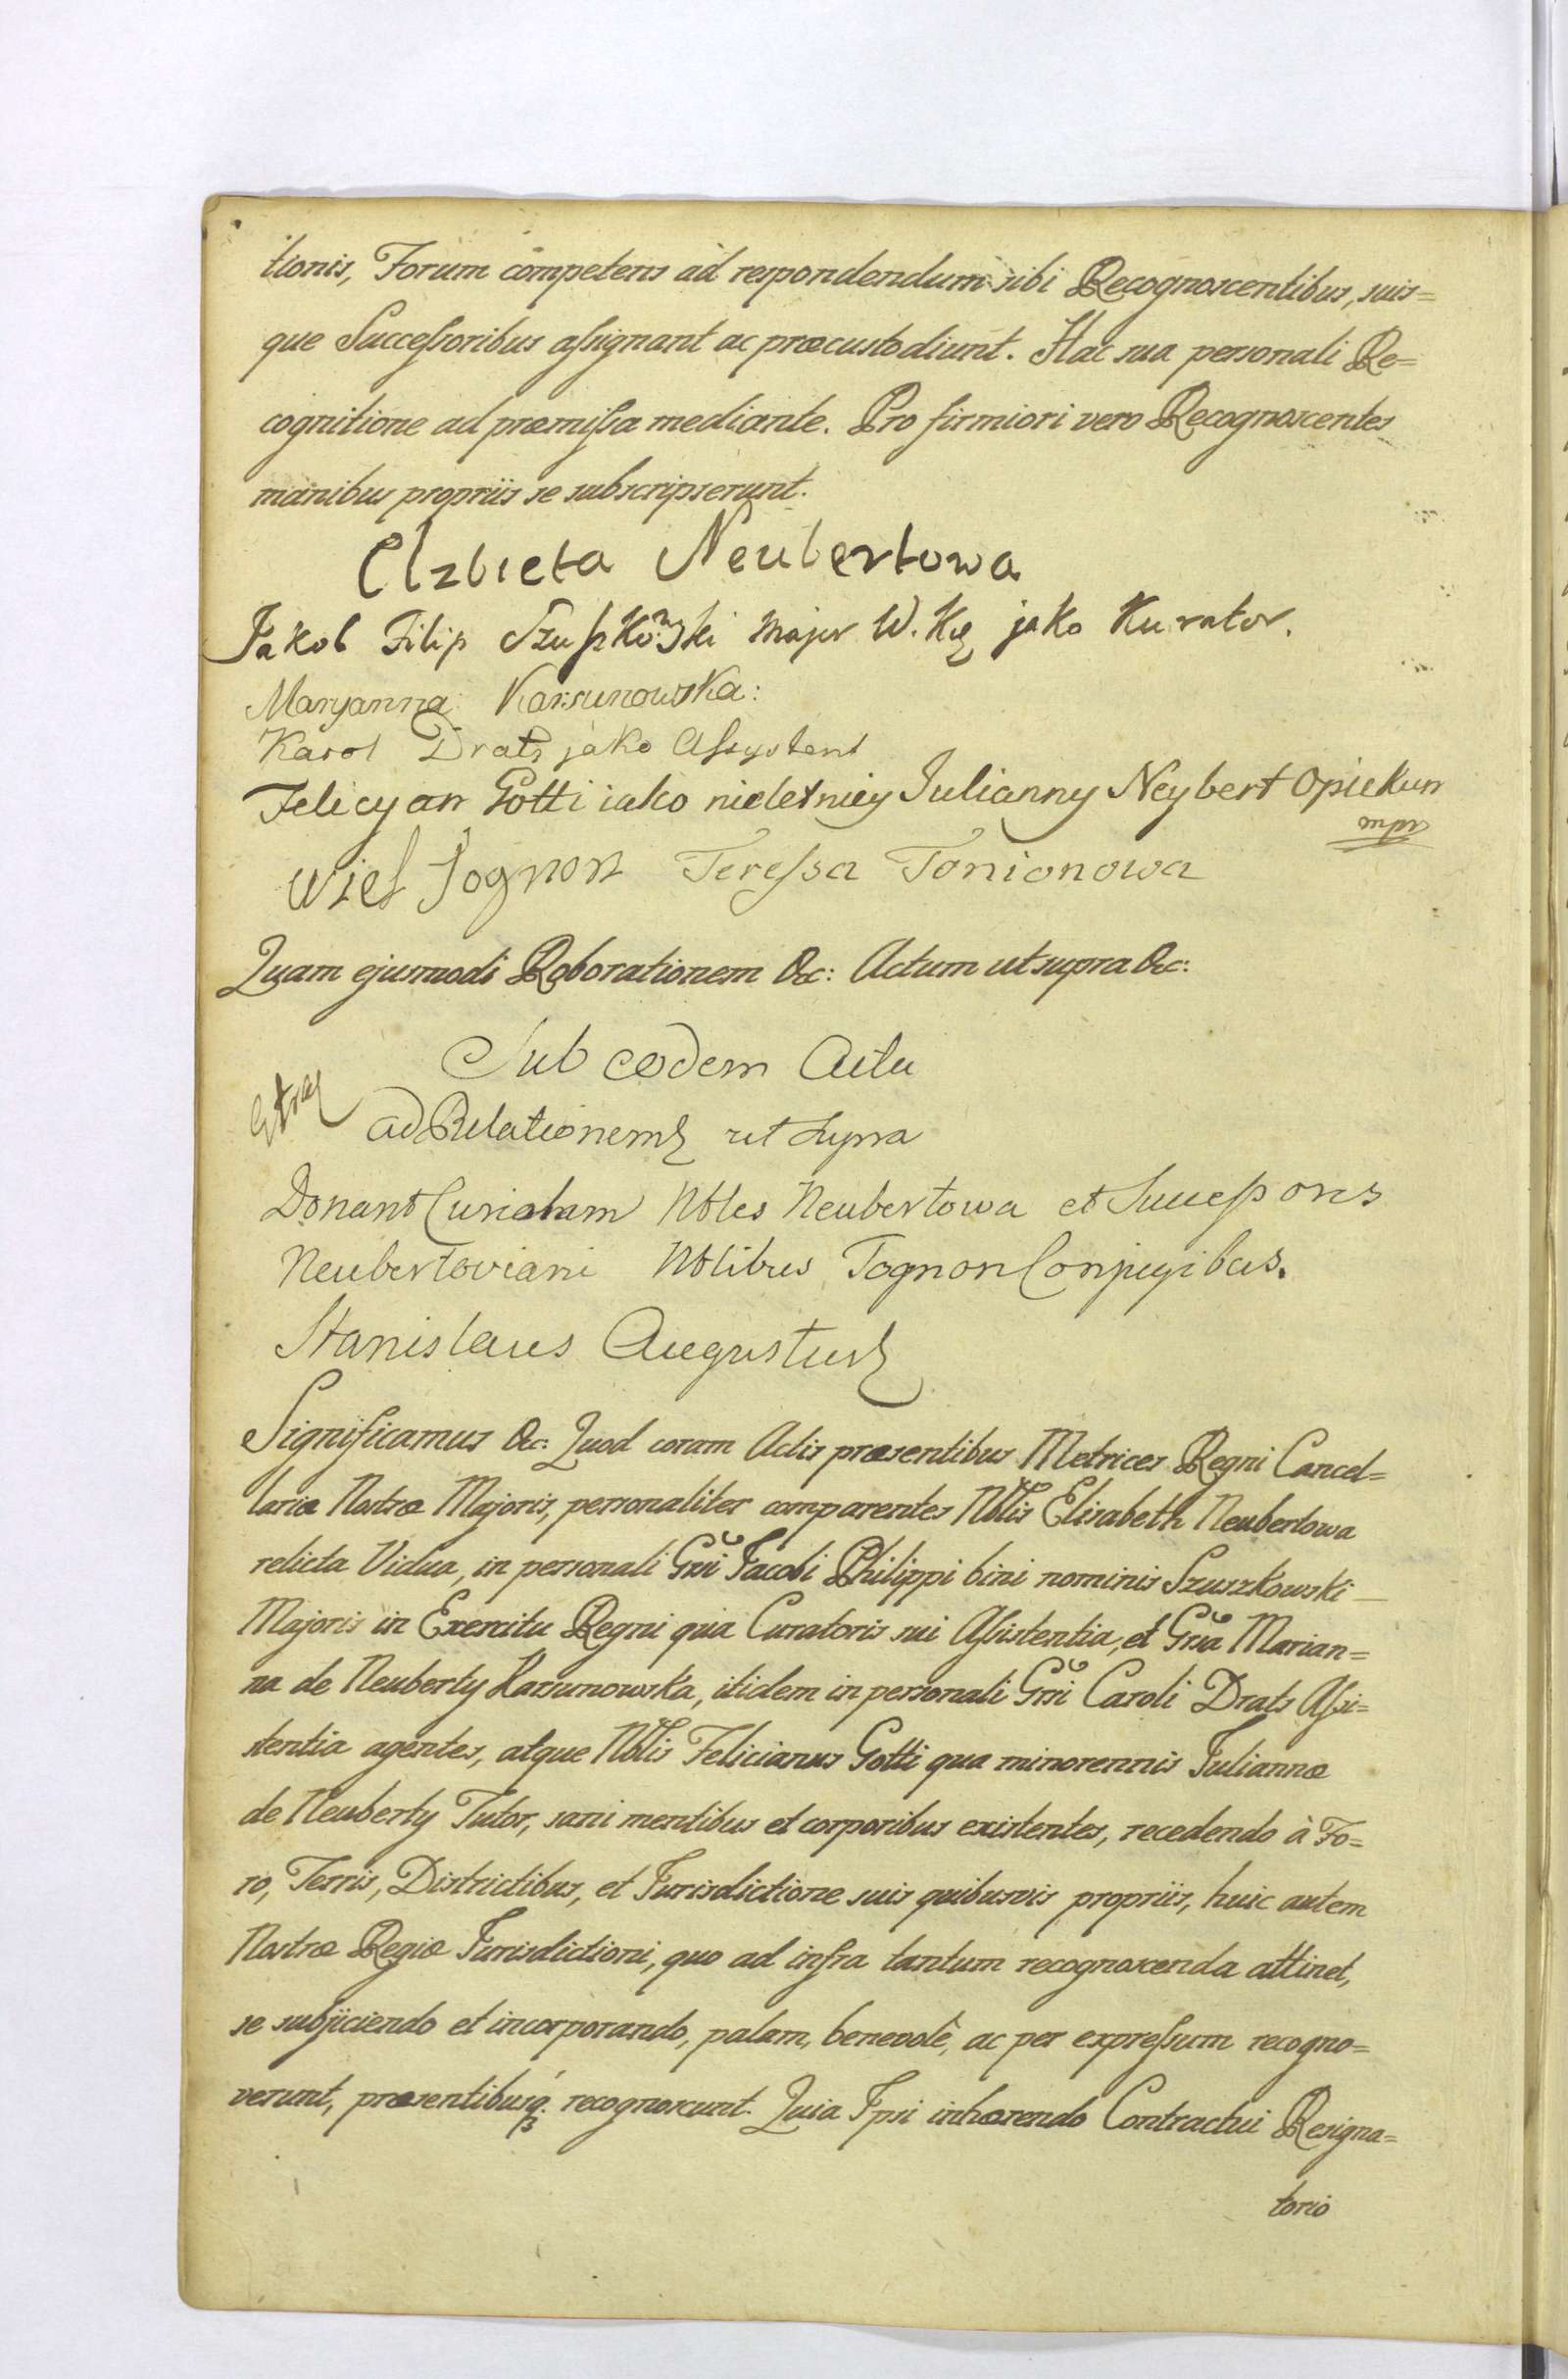 tionis, Forum competens ad respondendum sibi Recognoscentibus, suis=
que Succeſsoribus aſsignant ac præcustodiunt. Hac sua personali Re=
cognitione ad præmiſsa mediante. Pro firmiori vero Recognoscentes
manibus propriis se subscripserunt.
Elzbieta Neubertowa
Jakob Filip Szuſzkowski Major W. Kę jako Kurator.
Maryanna Karsunowska:
Karol Drats jako Aſsystent
Felicyan Gotti iako nieletniey Julianny Neybert Opiekun
mpr
Wiel Tognon Tereſsa Tonionowa
Quam ejusmodi Roborationem &c: Actum ut supra &c:
Sub eodem Actu
ad Relationem ut Supra
Donant Curialem Nbles Neubertowa et Succeſsores
Neubertoviani Nblibus Tognon Conjugibus.
Stanislaus Augustus
Significamus &c: Quod coram Actis præsentibus Metrices Regni Cancel=
lariæ Nostræ Majoris, personaliter comparentes Nblis Elisabeth Neubertowa
relicta Vidua, in personali Gsi Jacobi Philippi bini nominis Szuszkowski
Majoris in Exercitu Regni qua Curatoris sui Aſsistentia, et Gsa Marian=
na de Neuberty Karsunowska, itidem in personali Gsi Caroli Drats Aſsi=
stentia agentes, atque Nblis Felicianus Gotti qua minorennis Juliannæ
de Neuberty Tutor, sani mentibus et corporibus existentes, recedendo à Fo=
ro, Terris, Districtibus, et Jurisdictione suis quibusvis propriis, huic autem
Nostræ Regiæ Jurisdictioni, quo ad infra tantum recognoscenda attinet,
se subjiciendo et incorporando, palam, benevolè, ac per expreſsum recogno=
verunt, præsentibusq: recognoscunt. Quia Ipsi inhærendo Contractui Resigna=
torio